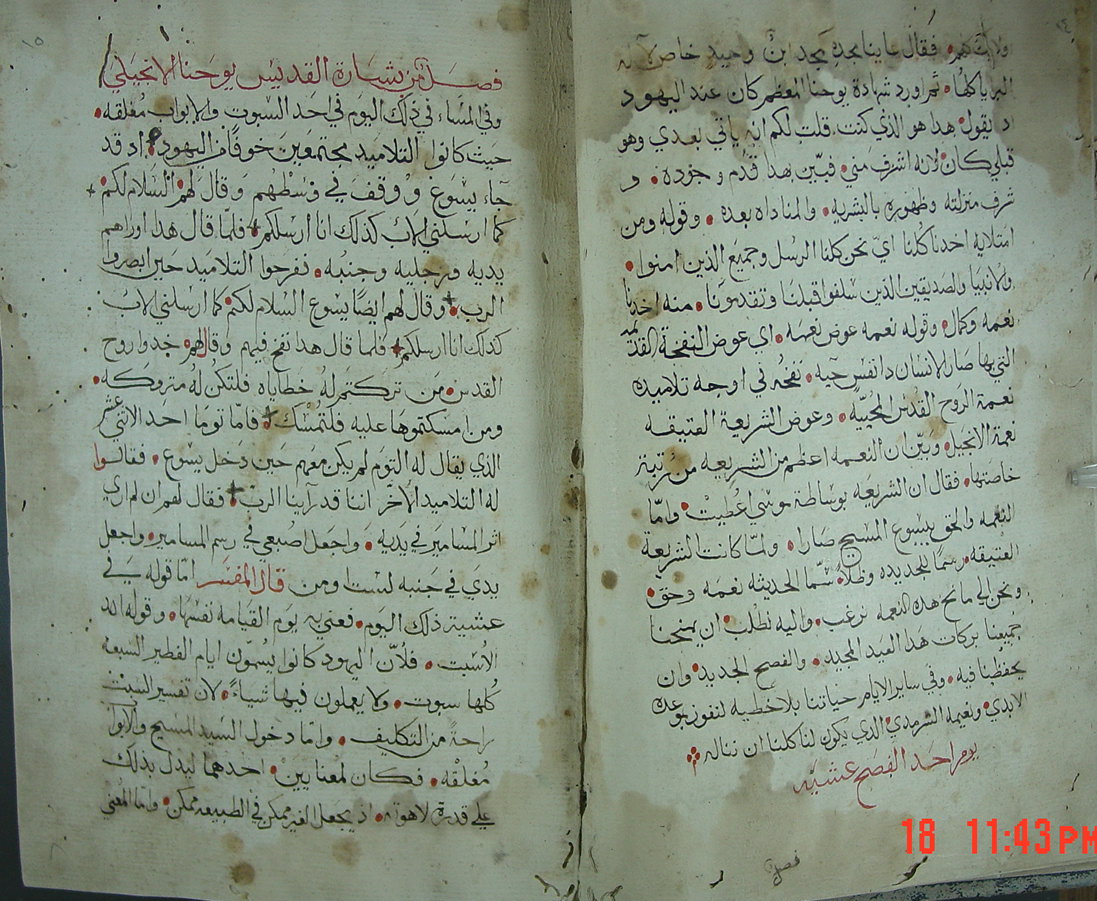 ولاك لهم • فقال عاينا مجده مجد ابن وحيد خاص لابيه
ثم اورد شهادة يوحنا المعظم كان عند اليهود
اذ يقول • هذا هو الذي كنت قلت لكم انه ياتي بعدي وهو
قبلي كان • لانه اشرف مني • فبين بهذا قدم وجوده • و
شرف منزلته وظهوره بالبشريه • والمناداه بعده • وقوله ومن
امتلايه اخدنا كلنا اي نحن كلنا الرسل وجميع الذين امنوا •
والانبيا والصديقين الذين سلفوا قبلنا وتقدمونا • منه اخدنا
نعمه وكمال • وقوله نعمه عوض نعمه • اي عوض النفخة القديمه
التي بها صار الانسان دا نفس حيه • نفخه في اوجه تلاميده
نعمة الروح القدس المحييه • وعوض الشريعة العتيقه
نعمة الانجيل • وبين ان النعمه اعظم من الشريعه من رتبة
خاصتها • فقال ان الشريعه بوساطة موسي اعطيت • واما
النعمه والحق بيسوع المسيح صارا • ولما كانت الشريعة
العتيقه رسما للجديده وظلا • سما الحديثه نعمه وحق •
ونحن الي مانح هده النعمه نرغب • واليه نطلب • ان يمنحنا
جميعنا بركات هدا العيد المجيد • والفصح الجديد • وان
يحفظنا فيه • وفي ساير الايام حياتنا بلا خطيه لنفوز بوعده
الابدي • ونعيمه السرمدي الذي يكون لنا كلنا ان نناله
يوم احد الفصح عشية
فصل
١٥
فصل من بشارة القديس يوحنا الانجيلي
وفي المساء في ذلك اليوم في احد السبوت والابواب مغلقه •
حيث كانوا التلاميد مجتمعين خوفا من اليهود • اد قد
جاء يسوع ووقف في وسطهم وقال لهم السلام لكم •
كما ارسلني الاب كذلك انا ارسلكم • فلما قال هدا اوراهم
يديه ورجليه وجنبه • نفرحوا التلاميد حين ابصروا
الرب • وقال لهم ايضا يسوع السلام لكم • كما ارسلني الاب
كدلك انا ارسلكم • فلما قال هدا نفخ فيهم وقال لهم • خدوا روح
القدس • من تركتم له خطاياه فلتكن له متروكه •
ومن امسكتموها عليه فلتمسك • فاما توما احد الاثني عشر
الذي يقال له التوم لم يكن معهم حين دخل يسوع • فقالوا
له التلاميد الاخر اننا قد راينا الرب • فقال لهم ان لم اري
اثر المسامير في يديه • واجعل اصبعي في رسم المسامير • واجعل
يدي في جنبه لست اومن • قال المفسر اما قوله في
عشية ذلك اليوم • فعني به يوم القيامه نفسها • وقوله احد
السبت • فلان اليهود كانوا يسمون ايام الفطير السبعه
كلها سبوت • ولا يعملون فيها شياء • لان تفسير السبت
راحة من التكليف • واما دخول السيد المسيح والابواب
مغلقه • فكان لمعنايين • احدهما ليدل بذلك
علي قدرة لاهوته • اد يجعل الغير ممكن في الطبيعه ممكن • واما المعني
18 11:43 PM